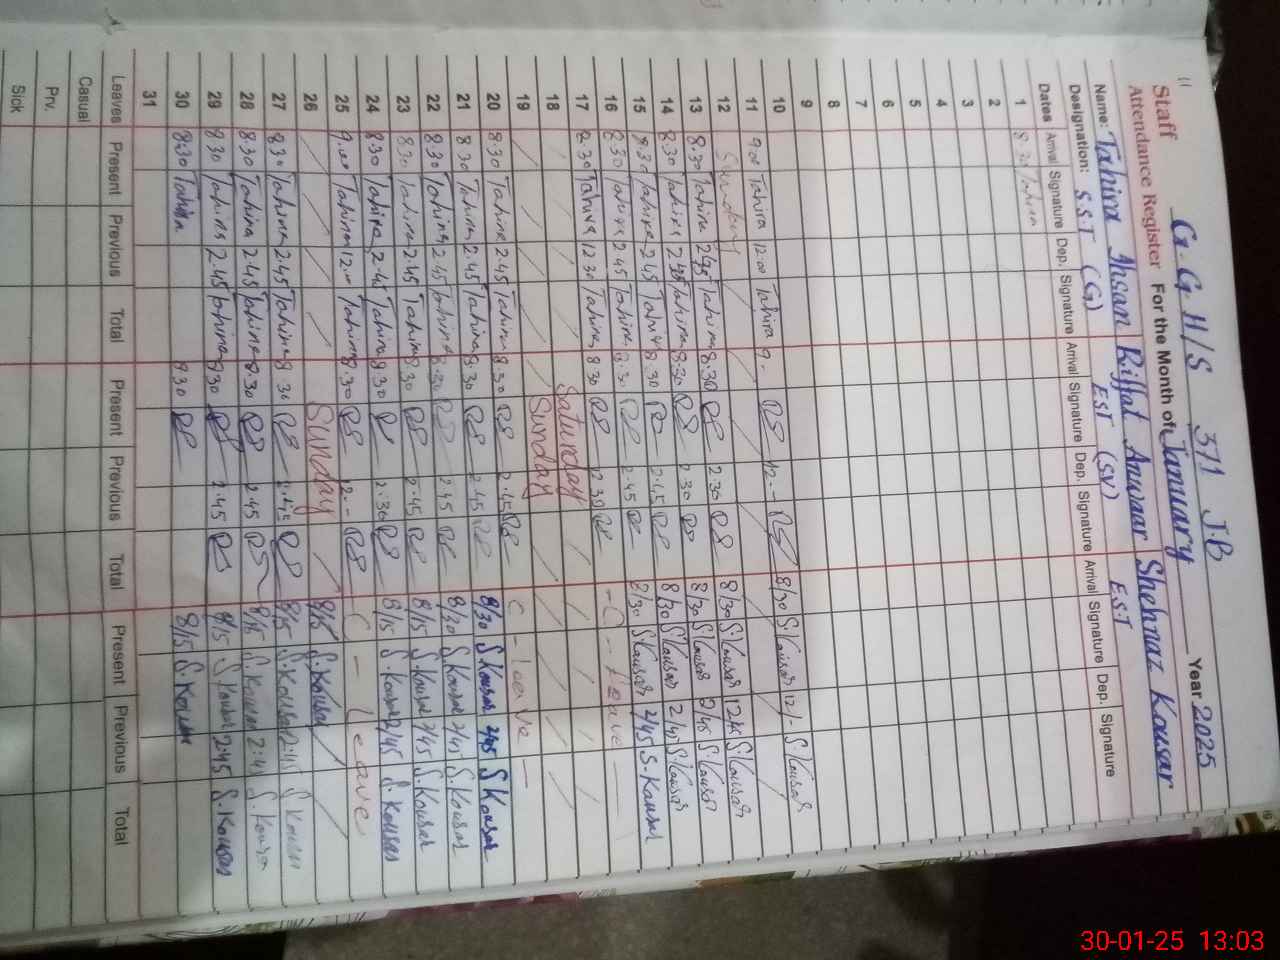 11
G.G.H/S 371 J.B
Staff
Attendance Register For the Month of January Year 2025
Name: Tahira Ahsan Riffat Anwaar Shehnaz Kousar
Designation: S.S.T (G) EST (SV) E.S.T
Dates Arrival Signature Dep. Signature Arrival Signature Dep. Signature Arrival Signature Dep. Signature
1 8:30 Tahira
2
3
4
5
6
7
8
9
10 9:00 Tahira 12:00 Tahira 9- RS 12.- RS 8/30 S.Kousar 12/- S.Kousar
11 Sunday
12 8:30 Tahira 2:45 Tahira 8:30 RS 2.30 RS 8/30 S.Kousar 12/45 S.Kousar
13 8:30 Tahira 2:45 Tahira 8:30 RS 2.30 RS 8/30 S.Kousar 2/45 S.Kousar
14 8:30 Tahira 2.45 Tahira 8.30 RS 2.45 RS 8/30 S.Kousar 2/45 S.Kousar
15 8:30 Tahira 2.45 Tahira 8:30 RS 2.45 RS 8/30 S.Kousar 2/45 S.Kousar
16 8:30 Tahira 12:30 Tahira 8:30 RS 2:30 RS - C - Leave
17 Saturday
18 Sunday
19 C - Leave -
20 8:30 Tahira 2.45 Tahira 8:30 RS 2.45 RS 8/30 S.Kousar 2/45 S Kousar
21 8:30 Tahira 2.45 Tahira 8:30 RS 2.45 RS 8/30 S.Kousar 2/45 S.Kousar
22 8:30 Tahira 2:45 Tahira 8:30 RS 2.45 RS 8/15 S.Kousar 2/45 S.Kousar
23 8:30 Tahira 2.45 Tahira 8:30 RS 2.45 RS 8/15 S.Kousar 2/45 S.Kousar
24 8:30 Tahira 2.45 Tahira 8:30 RS 2:30 RS C - Leave
25 9:00 Tahira 12.- Tahira 8:30 RS 12.- RS
26 Sunday 8/15 S.Kousar
27 8:30 Tahira 2.45 Tahira 8:30 RS 2.45 RS 8/15 S.Kousar 2:45 S Kousar
28 8:30 Tahira 2.45 Tahira 8:30 RS 2.45 RS 8/15 S.Kousar 2:45 S.Kousar
29 8:30 Tahira 2.45 Tahira 8:30 RS 2.45 RS 8/15 S Kousar 2:45 S.Kousar
30 8:30 Tahira 8:30 RS 8/15 S.Kousar
31
Leaves Present Previous Total Present Previous Total Present Previous Total
Casual
Prv.
Sick
30-01-25 13:03